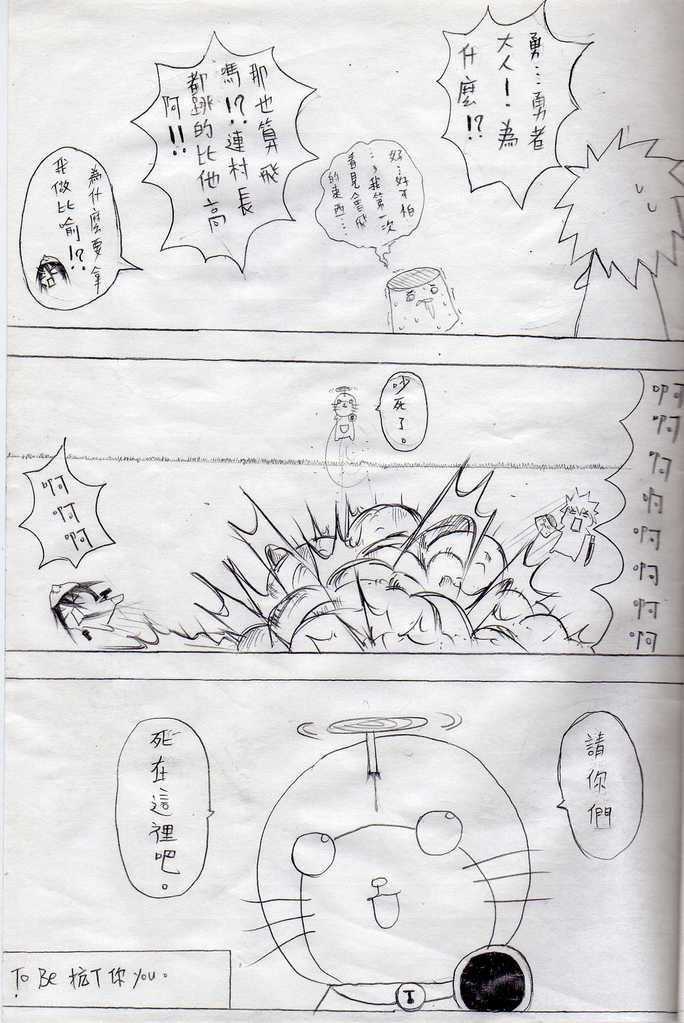 勇…勇者
大人！為
什麼!?
好…好可怕
…，我第一次
看見會飛
的東西…
那也算飛
嗎!?連村長
都跳的比他高
阿!!
為什麼要拿
我做比喻!?
吵死了。
啊
啊
啊
啊
啊
啊
啊
啊
啊
啊
啊
請你們
死在這裡吧。
To Be 抗T你 You。